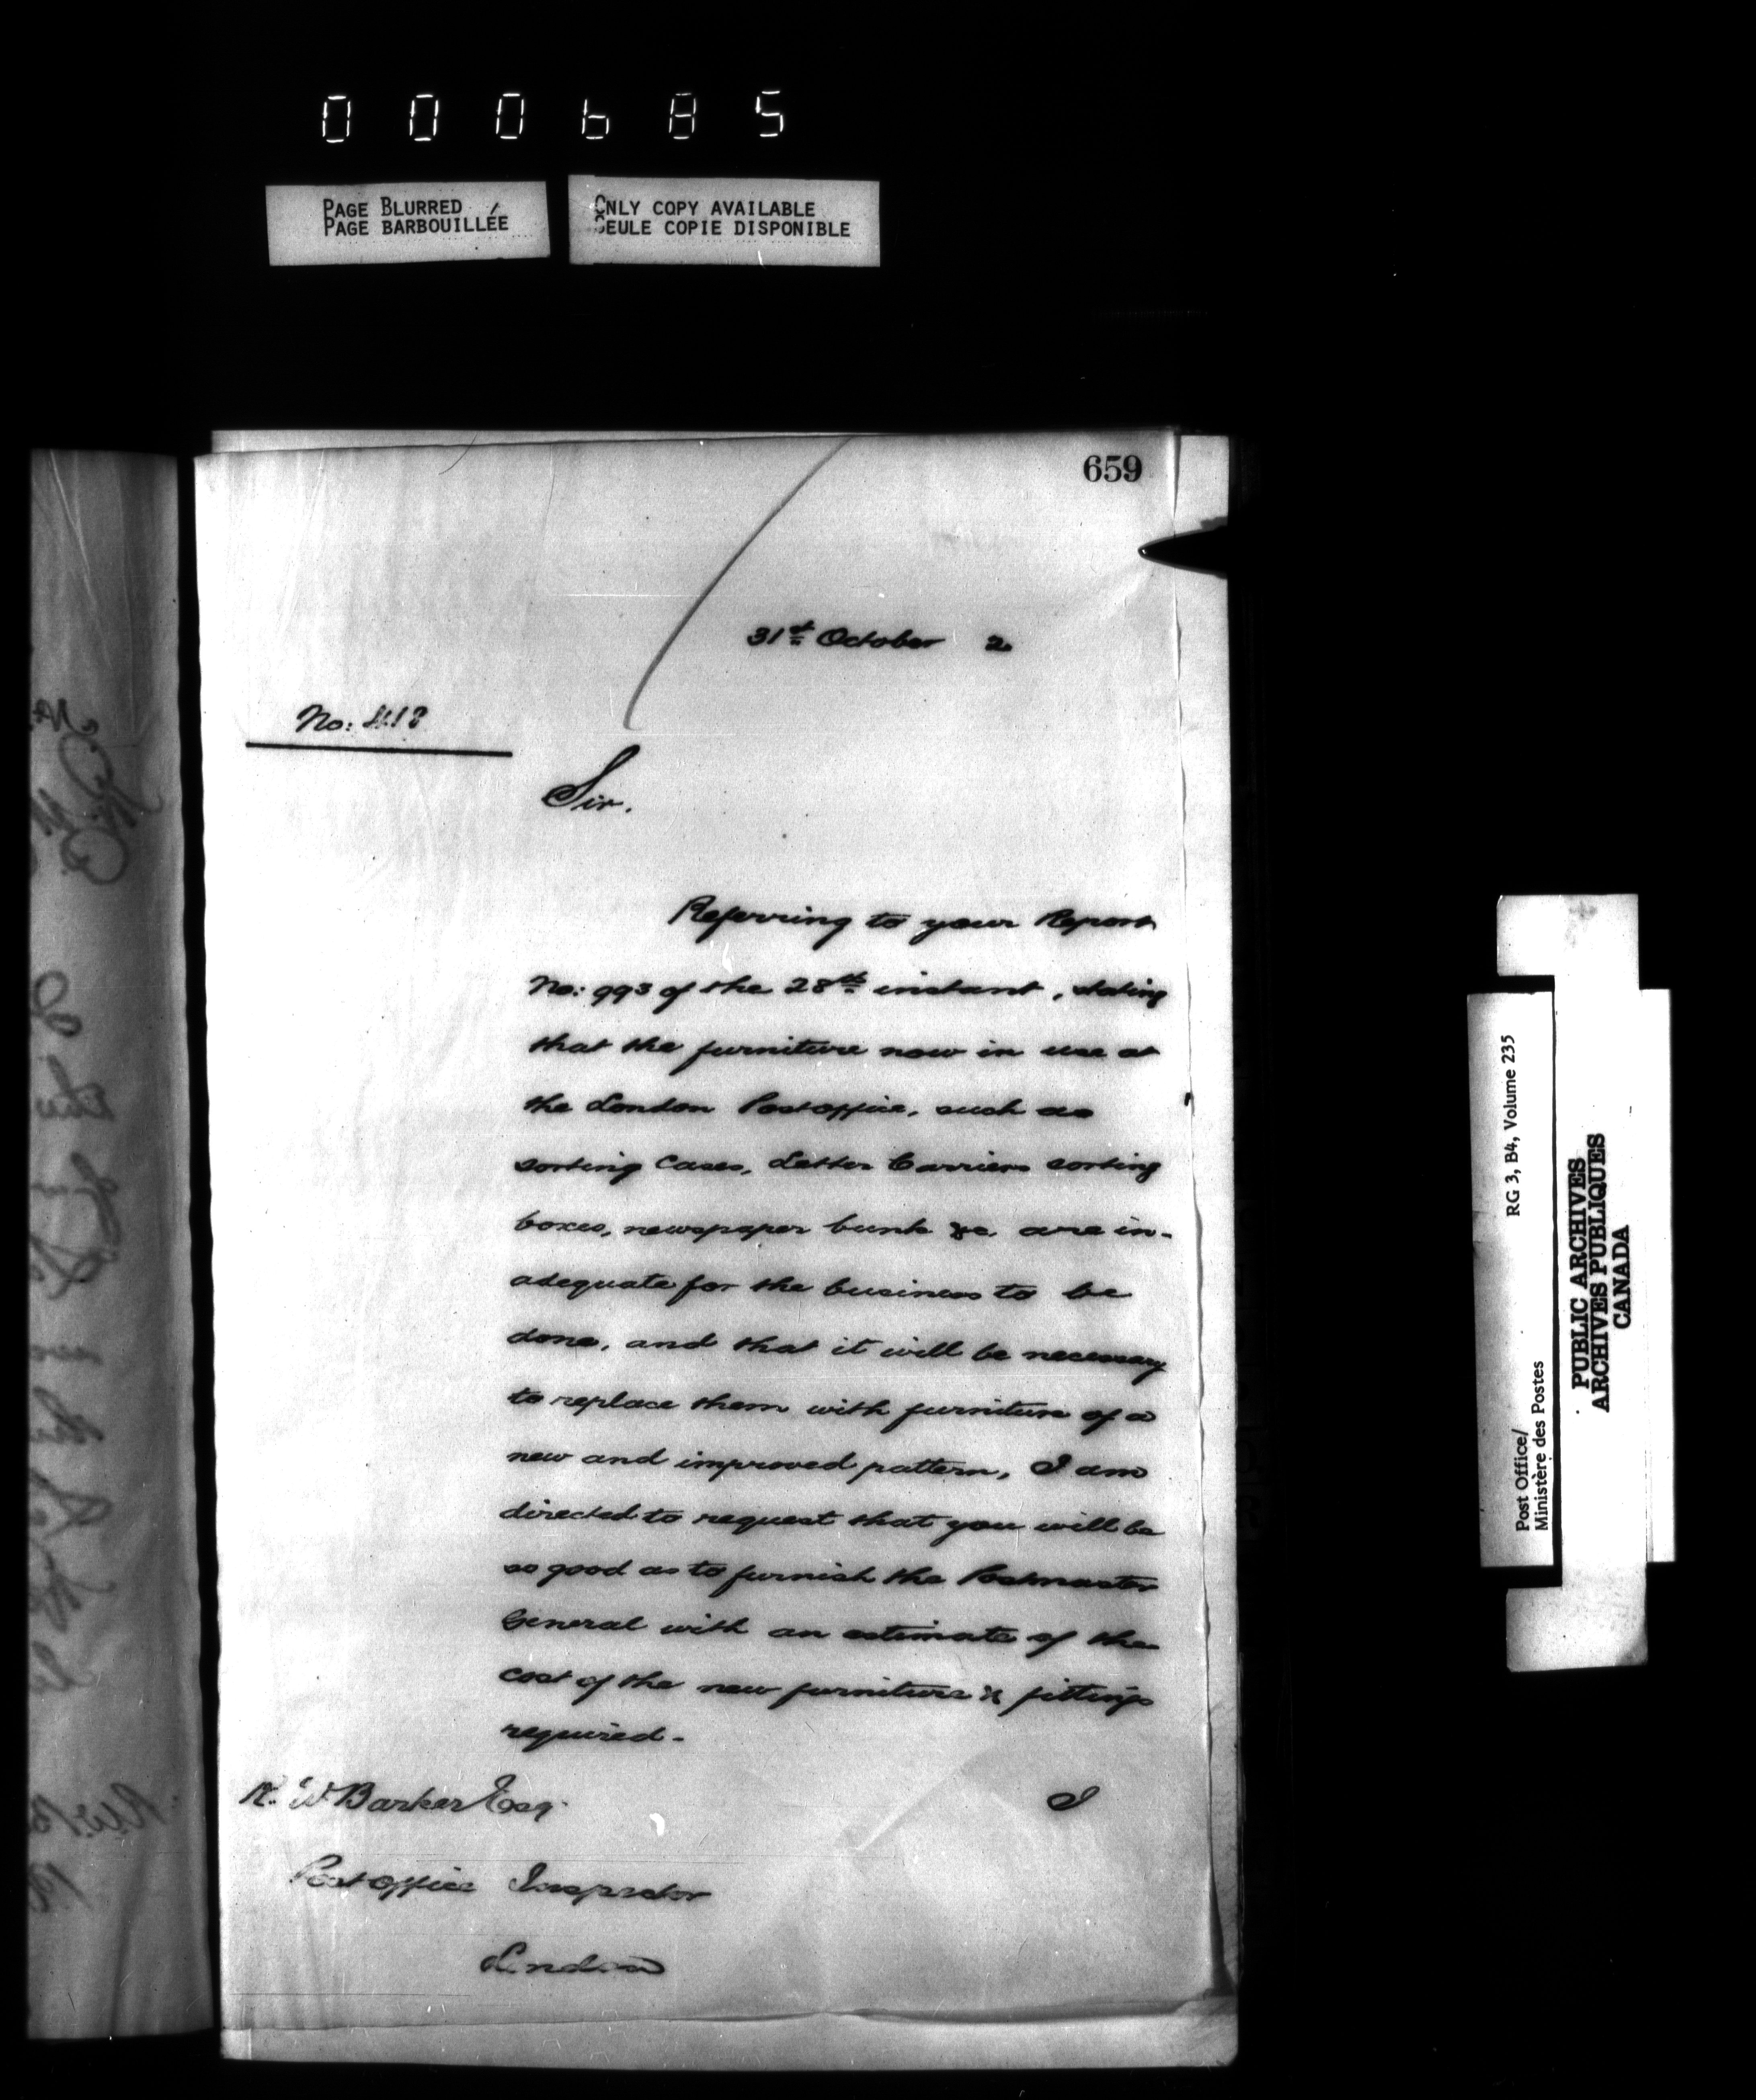 000685
PAGE BLURRED
PAGE BARBOUILLÉE
ONLY COPY AVAILABLE
SEULE COPIE DISPONIBLE
659
31st October 2
No: 418
Sir.
Referring to your Report
No: 993 of the 28th instant, stating
that the furniture now in use at
the London Postoffice, such as
sorting Cases, Letter Carriers sorting
boxes, newspaper bunks &c. are in-
adequate for the business to be
done, and that it will be necessary
to replace them with furniture of a
new and improved pattern, I am
directed to request that you will be
so good as to furnish the Postmaster
General with an estimate of the
cost of the new furniture & fittings
required.-
I
R. W Barker Esq.
Post Office Inspector
London
RG 3, B4, Volume 235
Post Office/
Ministère des Postes
PUBLIC ARCHIVES
ARCHIVES PUBLIQUES
CANADA